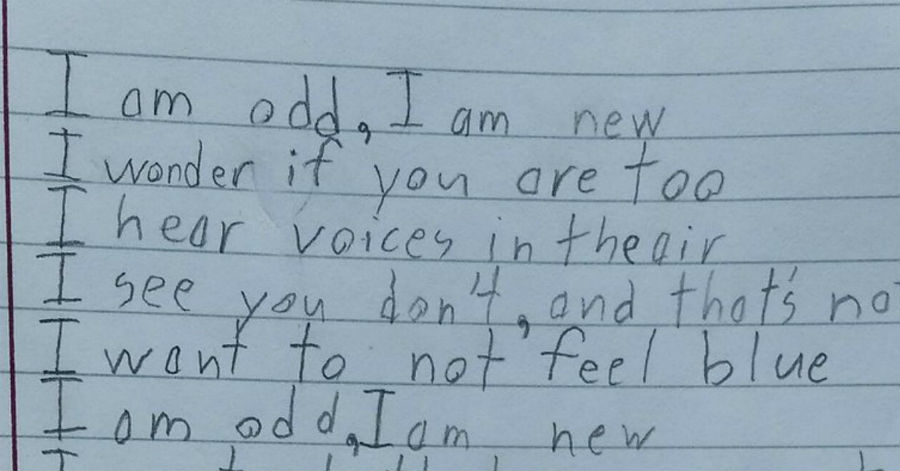 I am odd, I am new
I wonder if you are too
I hear voices in the air
I see you don't, and that's no
I want to not feel blue
I am odd, I am new
I